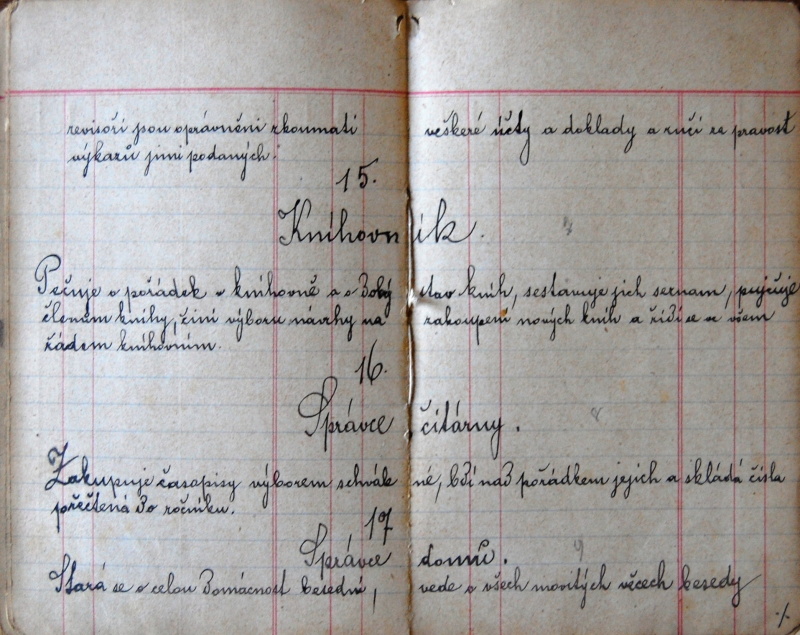 revisoři jsou oprávněni zkoumati veškeré účty a doklady a ručí za pravost
výkazů jimi podaných.
15.
Knihovník.
Pečuje o pořádek v knihovně a o dobý stav knih, sestavuje jich seznam, pujčuje
členům knihy, činí výboru návrhy na zakoupení nových knih a řídí se ve všem
řádem knihovním.
16.
Správce čítárny.
8
Zakupuje časopisy výborem schvále né, bdí nad pořádkem jejich a skládá čísla
přečtená do ročníku.
17
Správce domů.
9
Stará se o celou domácnost besední, vede o všech movitých věcech besedy
·/·